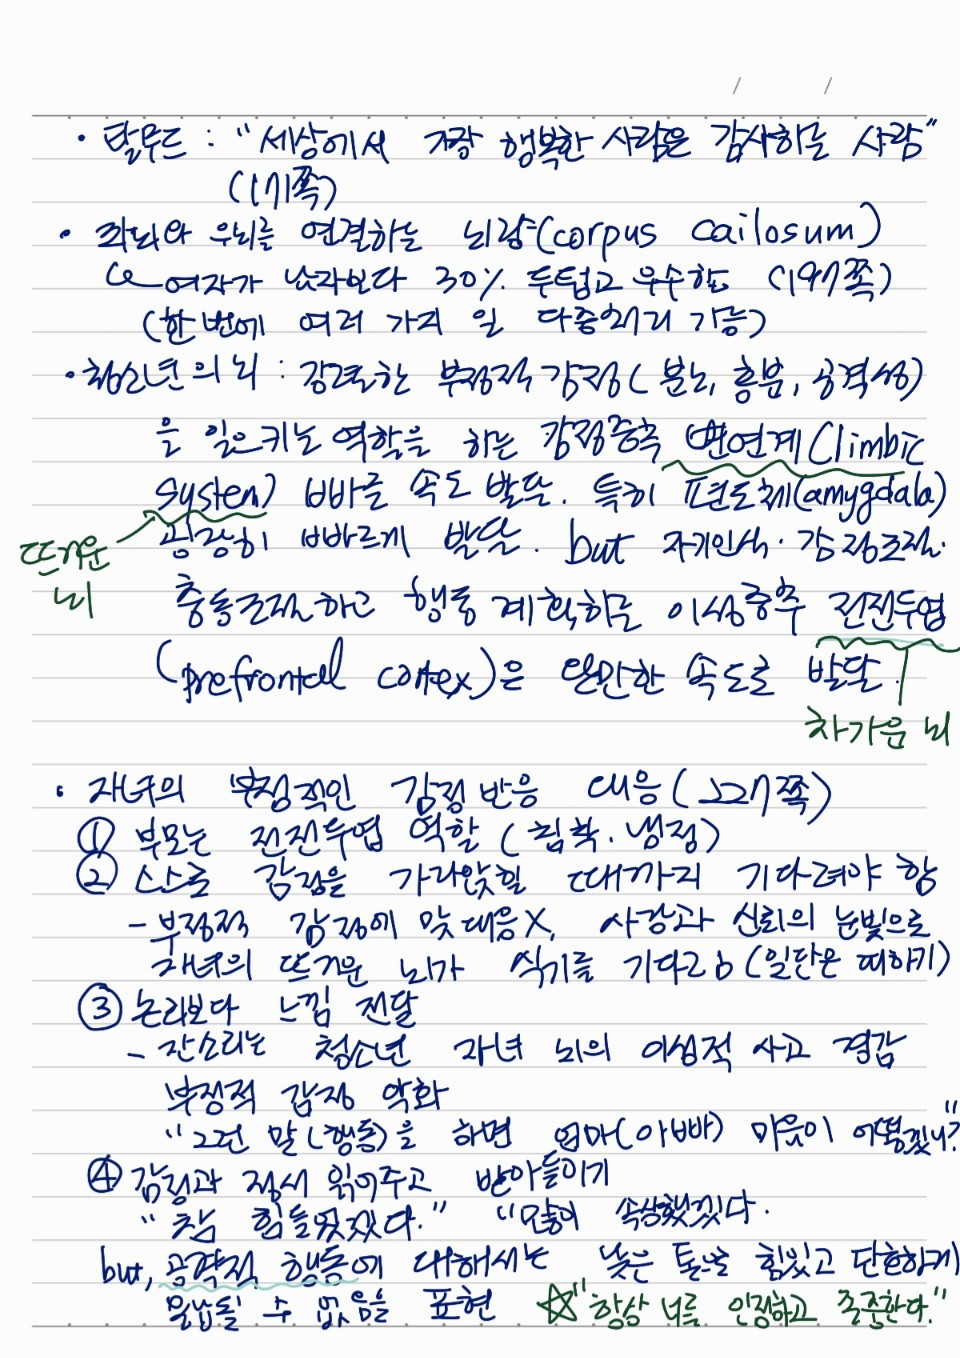 / /
• 탈무드 : "세상에서 가장 행복한 사람은 감사하는 사람"
(171쪽)
• 좌뇌와 우뇌를 연결하는 뇌량(corpus cailosum)
↳ 여자가 남자보다 30% 두텁고 우수함 (197쪽)
(한번에 여러 가지 일 다중처리 가능)
• 청소년의 뇌 : 강력한 부정적 감정(분노, 흥분, 공격성)
을 일으키는 역할을 하는 감정중추 변연계(limbic
system) 빠른 속도 발달. 특히 편도체(amygdala)
뜨거운 뇌
굉장히 빠르게 발달. but 자기인식·감정조절·
충동조절하고 행동 계획하는 이성중추 전전두엽
(prefrontal cortex)은 완만한 속도로 발달.
차가운 뇌
• 자녀의 부정적인 감정 반응 대응(227쪽)
① 부모는 전전두엽 역할 (침착·냉정)
② 스스로 감정을 가라앉힐 때까지 기다려야 함
- 부정적 감정에 맞대응X, 사랑과 신뢰의 눈빛으로
자녀의 뜨거운 뇌가 식기를 기다림(일단은 피하기)
③ 논리보다 느낌 전달
- 잔소리는 청소년 자녀 뇌의 이성적 사고 경감
부정적 감정 악화
"그런 말(행동)을 하면 엄마(아빠) 마음이 어떻겠니?"
④ 감정과 정서 읽어주고 받아들이기
"참 힘들었겠다." "많이 속상했겠다.
but, 공격적 행동에 대해서는 낮은 톤으로 힘있고 단호하게
용납될 수 없음을 표현 ☆"항상 너를 인정하고 존중한다."